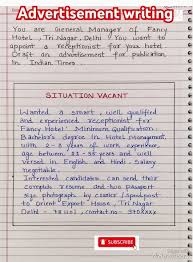 Advertisement writing
You are General Manager of Fancy
Hotel, Tri Nagar, Delhi. You want to
appoint a receptionist for your hotel
Draft an advertisement for publication
in Indian Times.
SITUATION VACANT
Wanted a smart, well qualified
and experienced receptionist for
'Fancy Hotel'. Minimum qualification:
Bachelor's degree in Hotel Management,
with 2-3 years of work experience,
age between 25-35 years and well
versed in English and Hindi. Salary
negotiable.
Interested candidates can send their
complete resume and two passport
size photographs by courier/speedpost
to Orient Export House, Tri Nagar
Delhi - contact no-
SUBSCRIBE